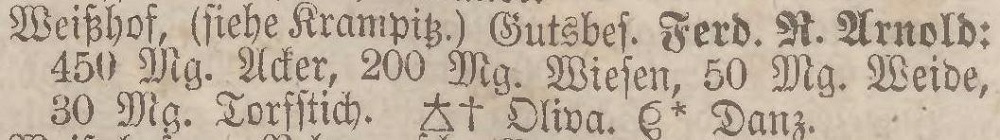 Weißhof, (siehe Krampitz.) Gutsbes. Ferd. R. Arnold:
450 Mg. Acker, 200 Mg. Wiesen, 50 Mg. Weide,
30 Mg. Torfstich. † Oliva. * Danz.